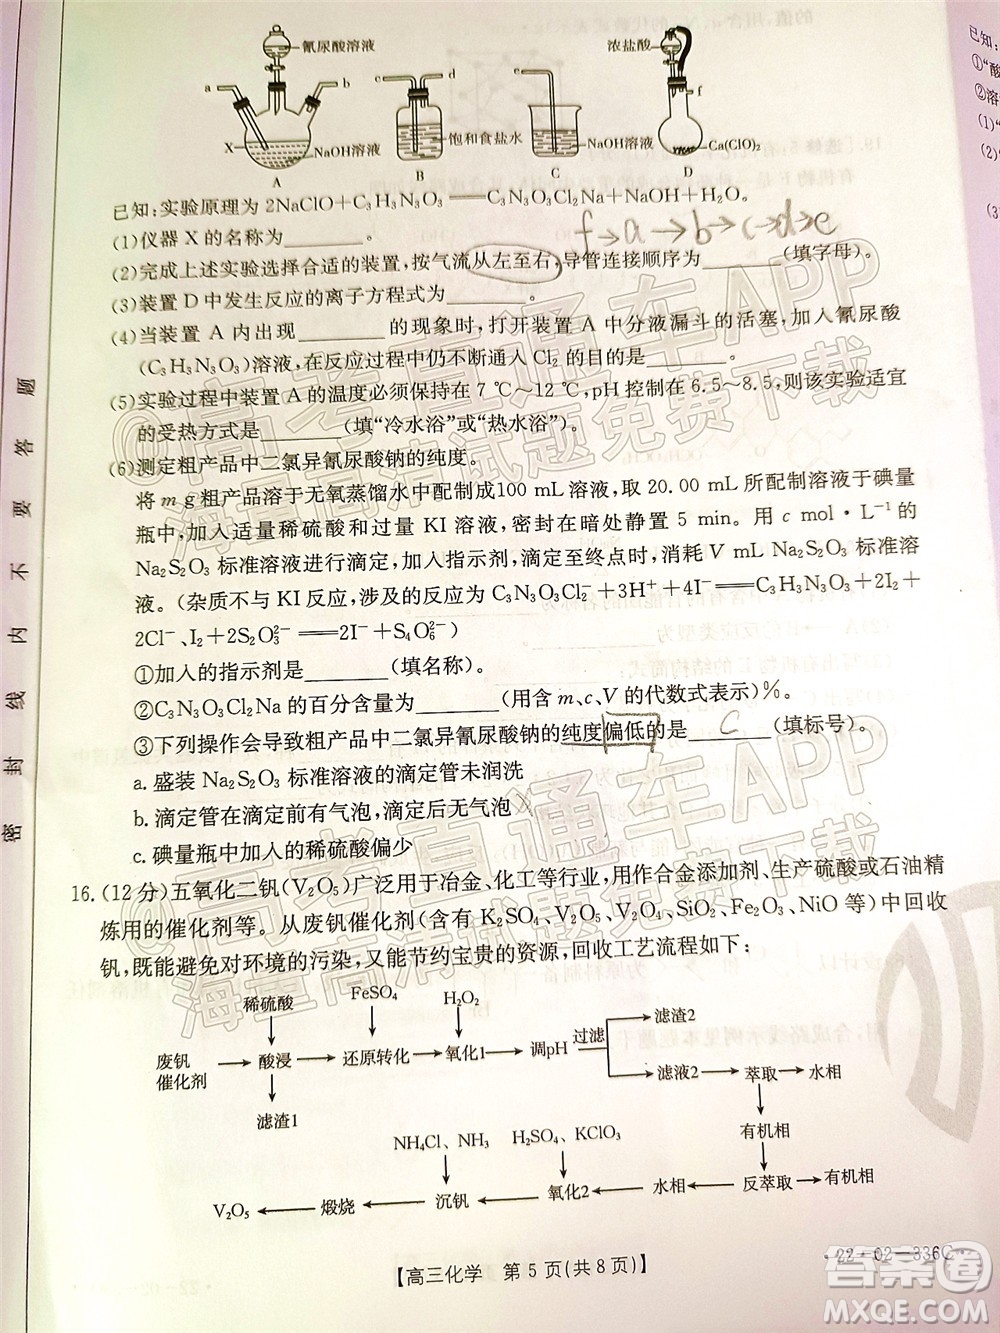 氰尿酸溶液
浓盐酸
a b c d e f
X
NaOH溶液
饱和食盐水
NaOH溶液
Ca(ClO)₂
A B C D
已知:实验原理为2NaClO+C₃H₃N₃O₃══C₃N₃O₃Cl₂Na+NaOH+H₂O。
f→a→b→c→d→e
(1)仪器 X 的名称为________。
(2)完成上述实验选择合适的装置,按气流从左至右,导管连接顺序为________(填字母)。
(3)装置 D 中发生反应的离子方程式为________。
(4)当装置 A 内出现________的现象时,打开装置 A 中分液漏斗的活塞,加入氰尿酸
(C₃H₃N₃O₃)溶液,在反应过程中仍不断通入 Cl₂ 的目的是________。
(5)实验过程中装置 A 的温度必须保持在 7 ℃～12 ℃,pH 控制在 6.5～8.5,则该实验适宜
的受热方式是________(填“冷水浴”或“热水浴”)。
(6)测定粗产品中二氯异氰尿酸钠的纯度。
将 m g 粗产品溶于无氧蒸馏水中配制成100 mL 溶液,取 20.00 mL 所配制溶液于碘量
瓶中,加入适量稀硫酸和过量 KI 溶液,密封在暗处静置 5 min。用 c mol·L⁻¹
Na₂S₂O₃ 标准溶液进行滴定,加入指示剂,滴定至终点时,消耗 V mL Na₂S₂O₃ 标准溶
液。(杂质不与 KI 反应,涉及的反应为 C₃N₃O₃Cl₂⁻+3H⁺+4I⁻══C₃H₃N₃O₃+2I₂+
2Cl⁻、I₂+2S₂O₃²⁻══2I⁻+S₄O₆²⁻)
①加入的指示剂是________(填名称)。
②C₃N₃O₃Cl₂Na 的百分含量为________(用含 m、c、V 的代数式表示)%。
③下列操作会导致粗产品中二氯异氰尿酸钠的纯度偏低的是 C (填标号)。
a. 盛装 Na₂S₂O₃ 标准溶液的滴定管未润洗
b. 滴定管在滴定前有气泡,滴定后无气泡
c. 碘量瓶中加入的稀硫酸偏少
16.(12 分)五氧化二钒(V₂O₅)广泛用于冶金、化工等行业,用作合金添加剂、生产硫酸或石油精
炼用的催化剂等。从废钒催化剂(含有 K₂SO₄、V₂O₅、V₂O₄、SiO₂、Fe₂O₃、NiO 等)中回收
钒,既能避免对环境的污染,又能节约宝贵的资源,回收工艺流程如下:
稀硫酸 FeSO₄ H₂O₂ 滤渣2
废钒催化剂 酸浸 还原转化 氧化1 调pH 过滤
滤液2 萃取 水相
滤渣1
NH₄Cl、NH₃ H₂SO₄、KClO₃ 有机相
V₂O₅ 煅烧 沉钒 氧化2 水相 反萃取 有机相
【高三化学 第 5 页(共 8 页)】
·22—02—336C·
密 封 线 内 不 要 答 题
@高考直通车APP
海量高清试题免费下载
@高考直通车APP
海量高清试题免费下载
答案圈
MXQE.COM